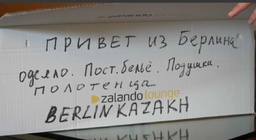 ПРИВЕТ из Берлина
одеяло. Пост. бельё. Подушки.
полотенца
zalando lounge
BERLIN KAZAKH